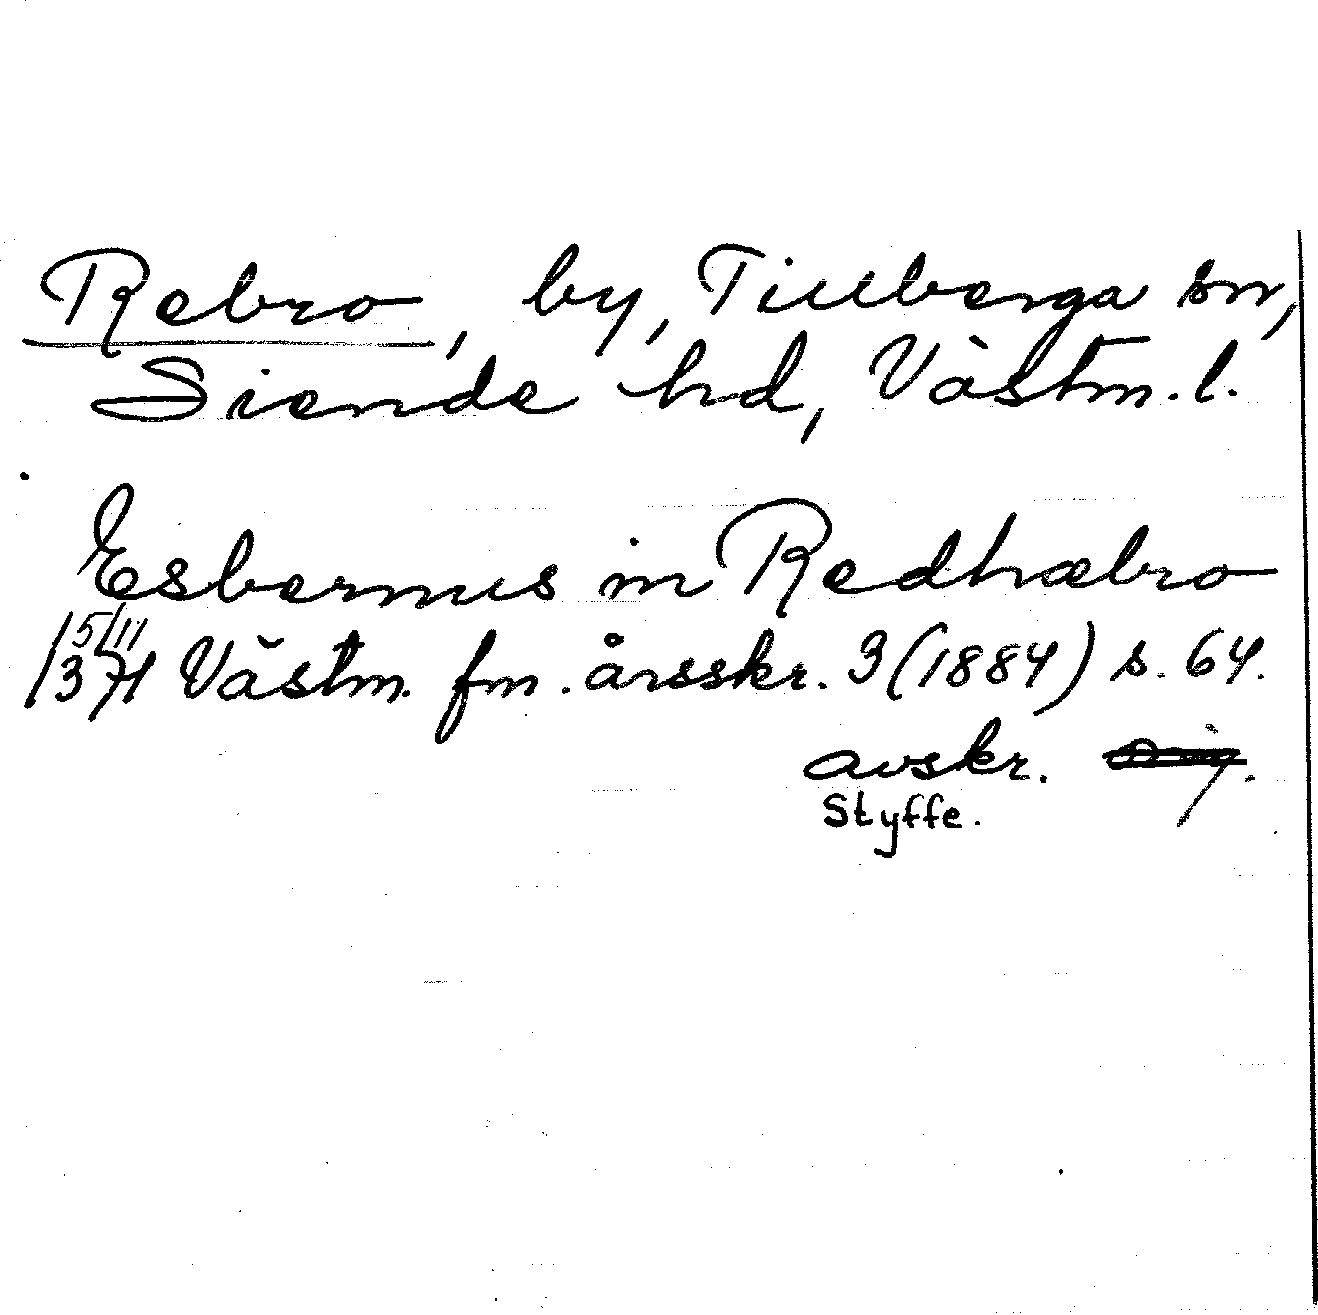 Rebro, by, Tillberga sn,
Siende hd, Västm. l.
Esbernus in Redhæbro
15/11
1371 Västm. fm. årsskr. 3 (1884) s. 64.
avskr.
Styffe.